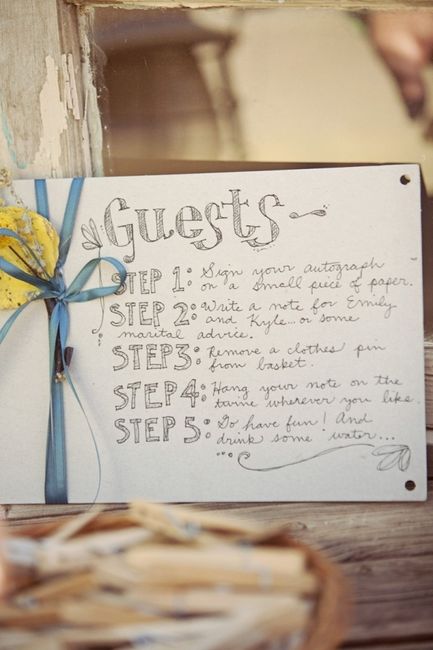 Guests
STEP 1: Sign your autograph
on a small piece of paper.
STEP 2: Write a note for Emily
and Kyle... or some
marital advice.
STEP 3: Remove a clothes pin
from basket.
STEP 4: Hang your note on the
twine wherever you like.
STEP 5: Go have fun! And
drink some "water"...